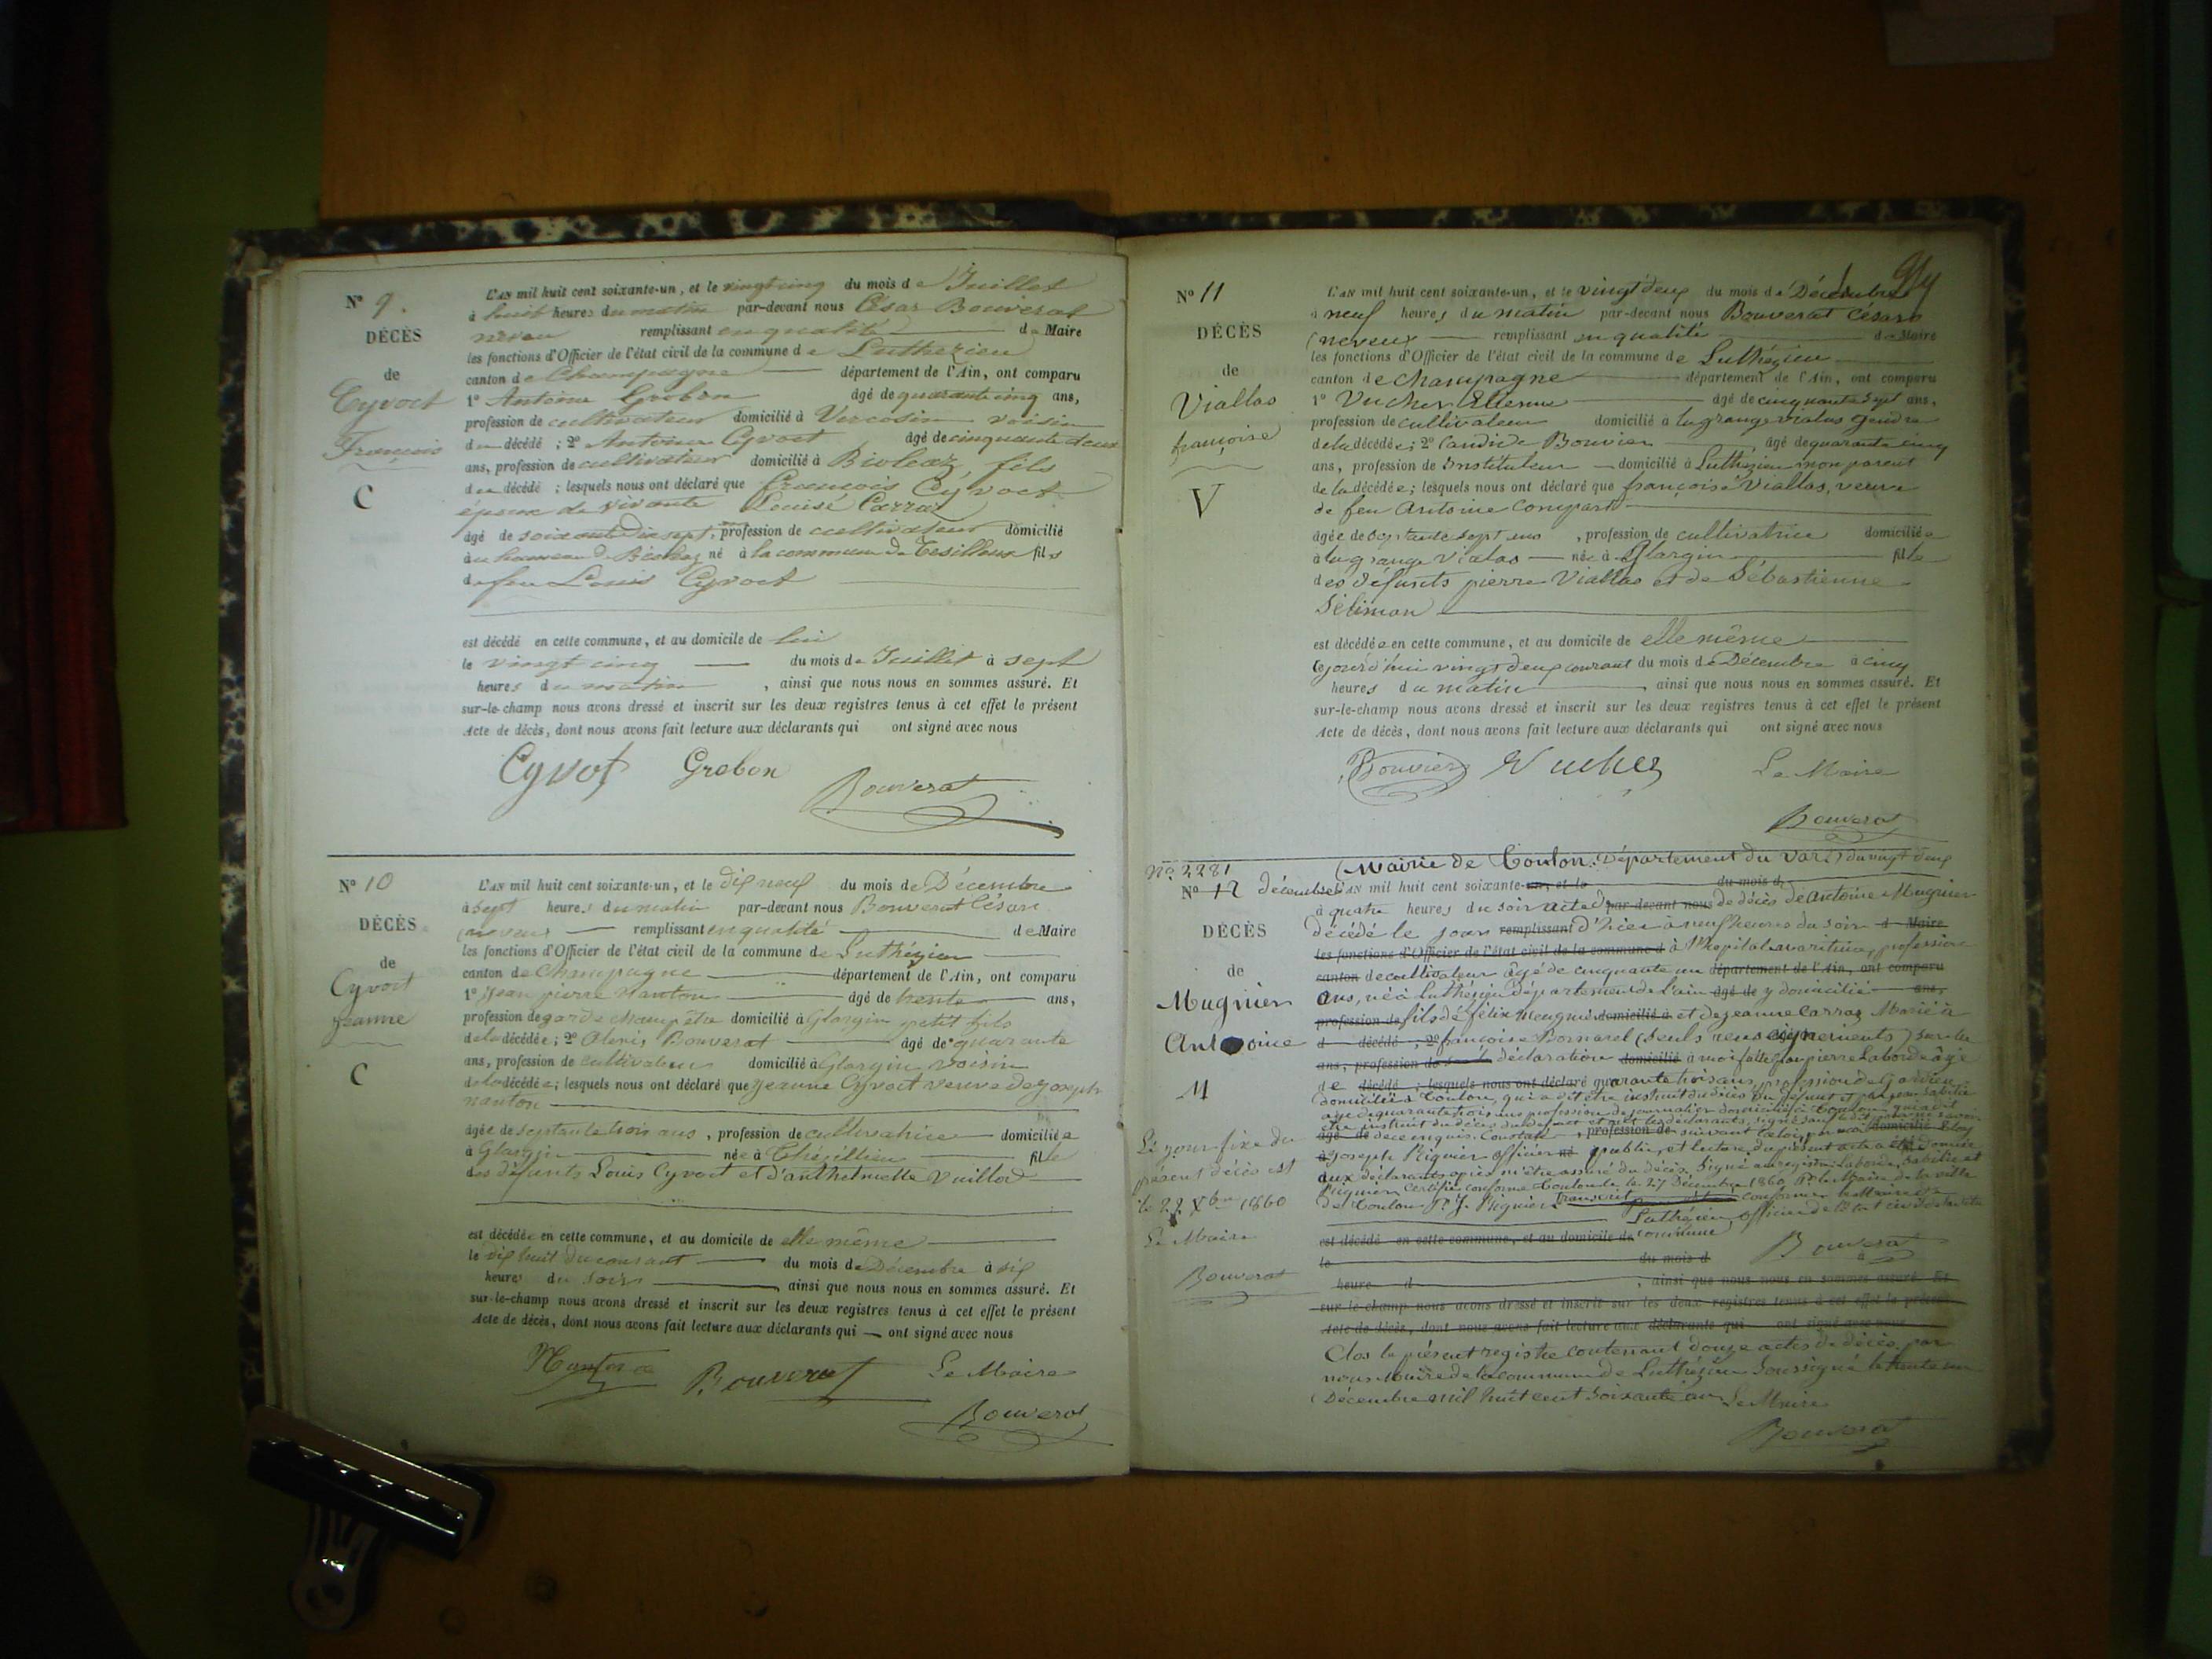 Nº 9.
DÉCÈS
de
Cyvoct
François
C
L'AN mil huit cent soixante-un, et le vingt cinq du mois de Juillet
à huit heures du matin par-devant nous César Bouverat
neveu remplissant en qualité de Maire
les fonctions d'Officier de l'état civil de la commune de Luthezieu
canton de Champagne département de l'Ain, ont comparu
1º Antoine Grobon âgé de quarante cinq ans,
profession de cultivateur domicilié à Vercosin voisin
du décédé ; 2º Antoine Cyvoct âgé de cinquante deux
ans, profession de cultivateur domicilié à Bioleaz, fils
du décédé ; lesquels nous ont déclaré que François Cyvoct
époux de vivante Louise Carraz
âgé de soixante dix sept ans, profession de cultivateur domicilié
au hameau de né à la commune de fils
de feu Louis Cyvoct
est décédé en cette commune, et au domicile de lui
le vingt cinq du mois de Juillet à sept
heures du matin , ainsi que nous nous en sommes assuré. Et
sur-le-champ nous avons dressé et inscrit sur les deux registres tenus à cet effet le présent
Acte de décès, dont nous avons fait lecture aux déclarants qui ont signé avec nous
Cyvot Grobon
Bouverat
Nº 10
DÉCÈS
de
Cyvoct
jeanne
C
L'AN mil huit cent soixante-un, et le dix neuf du mois de Décembre
à sept heures du matin par-devant nous Bouverat César
neveux remplissant en qualité de Maire
les fonctions d'Officier de l'état civil de la commune de Luthézieu
canton de Champagne département de l'Ain, ont comparu
1º jean pierre Nanton âgé de trente ans,
profession de garde champêtre domicilié à Glargin petit fils
de la décédée ; 2º Alexis Bouverat âgé de quarante
ans, profession de cultivateur domicilié à Glargin voisin
de la décédée ; lesquels nous ont déclaré que jeanne Cyvoct veuve de joseph
nanton
âgée de septante trois ans , profession de cultivatrice domiciliée
à Glargin née à Thézillieu fille
des défunts Louis Cyvoct et d'anthelmette Vuillod
est décédée en cette commune, et au domicile de elle même
le dix huit du courant du mois de Décembre à dix
heures du soir ainsi que nous nous en sommes assuré. Et
sur-le-champ nous avons dressé et inscrit sur les deux registres tenus à cet effet le présent
Acte de décès, dont nous avons fait lecture aux déclarants qui ont signé avec nous
Nanton Bouverat Le Maire
Bouverat
Nº 11
DÉCÈS
de
Viallas
françoise
V
L'AN mil huit cent soixante-un, et le vingt deux du mois de Décembre
à neuf heures du matin par-devant nous Bouverat César
neveux remplissant en qualité de Maire
les fonctions d'Officier de l'état civil de la commune de Luthézieu
canton de Champagne département de l'Ain, ont comparu
1º Vucher Etienne âgé de cinquante sept ans,
profession de cultivateur domicilié à la grange vialas gendre
de la décédée ; 2º Candide Bouvier âgé de quarante cinq
ans, profession de Instituteur domicilié à Luthézieu non parent
de la décédée ; lesquels nous ont déclaré que françoise Viallas, veuve
de feu Antoine Compart
âgée de septante sept ans , profession de cultivatrice domiciliée
à la grange Vialas née à Glargin fille
des défunts pierre Viallas et de Sébastienne
Sélimon
est décédée en cette commune, et au domicile de elle même
le jourd'hui vingt deux courant du mois de Décembre à cinq
heures du matin , ainsi que nous nous en sommes assuré. Et
sur-le-champ nous avons dressé et inscrit sur les deux registres tenus à cet effet le présent
Acte de décès, dont nous avons fait lecture aux déclarants qui ont signé avec nous
Bouvier Vucher Le Maire
Bouverat
Nº 2281 (Mairie de Toulon. Département du Var.) du vingt deux
Nº 12
DÉCÈS
de
Mugnier
Antoine
M
Le jour fixe du
présent décès est
le 22 Xbre 1860
Le Maire
Bouverat
décembre L'AN mil huit cent soixante-un, et le du mois d
à quatre heures du soir acte par-devant nous de décès de Antoine Mugnier
décédé le jour remplissant d'hier à neuf heures du soir d Maire
les fonctions d'Officier de l'état civil de la commune d à l'hopital maritime, profession
canton de cultivateur âgé de cinquante un département de l'Ain, ont comparu
ans, né à Luthézieu département de l'ain âgé de y domicilié ans,
profession de fils de félix Meugnié domicilié à et de jeanne Carraz Marié à
d décédé ; 2º françoise Bornarel (seuls renseignements) sur la
ans, profession de déclaration domicilié à moi faite jean pierre Laborde âgé
de décédé ; lesquels nous ont déclaré quarante trois ans, profession de Gardien
domicilié à Toulon, qui a dit être instruit du décès du défunt et par jean Sabilié
âgé de quarante trois ans profession de journalier domicilié à Toulon
à joseph Riquier officier né public, et lecture du présent acte a été donnée
aux déclarants après m'être assuré du décès. Signé au registre Laborde, Sabilié et
Riquier Certifié conforme Toulon le 27 Décembre 1860 P. le Maire de la ville
de Toulon P. J. Riquier Transcrit conforme le Maire de
Luthézieu, officier de l'état civil de la dite
est décédé en cette commune, et au domicile de commune
le du mois d Bouverat
heure d , ainsi que nous nous en sommes assuré. Et
sur-le-champ nous avons dressé et inscrit sur les deux registres tenus à cet effet le présent
Acte de décès, dont nous avons fait lecture aux déclarants qui ont signé avec nous
Clos le présent registre contenant douze actes de décès, par
nous Maire de la commune de Luthézieu soussigné le trente un
Décembre mil huit cent soixante un Le Maire
Bouverat